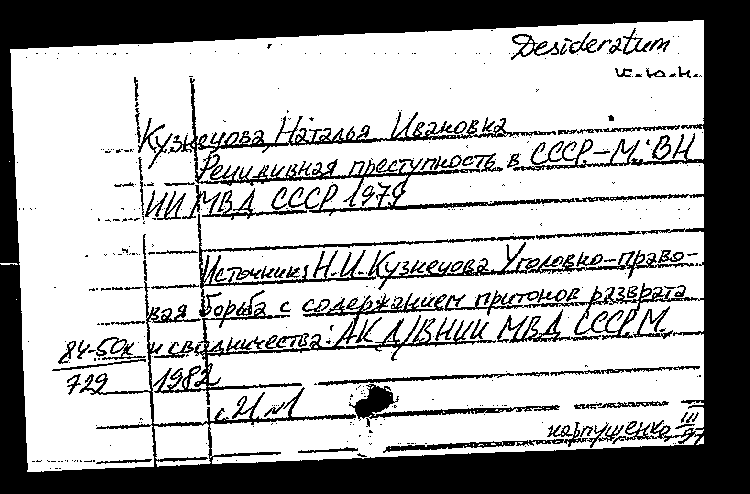 Desideratum
к.ю.н.
Кузнецова, Наталья Ивановна
Рецидивная преступность в СССР.-М.: ВН
ИИ МВД СССР, 1979
Источник: Н.И.Кузнецова Уголовно-право-
вая борьба с содержанием притонов разврата
84-50к и сводничества: АКД/ВНИИ МВД СССР.М.
729 1982
с.21, №1
Карпушенко III/97